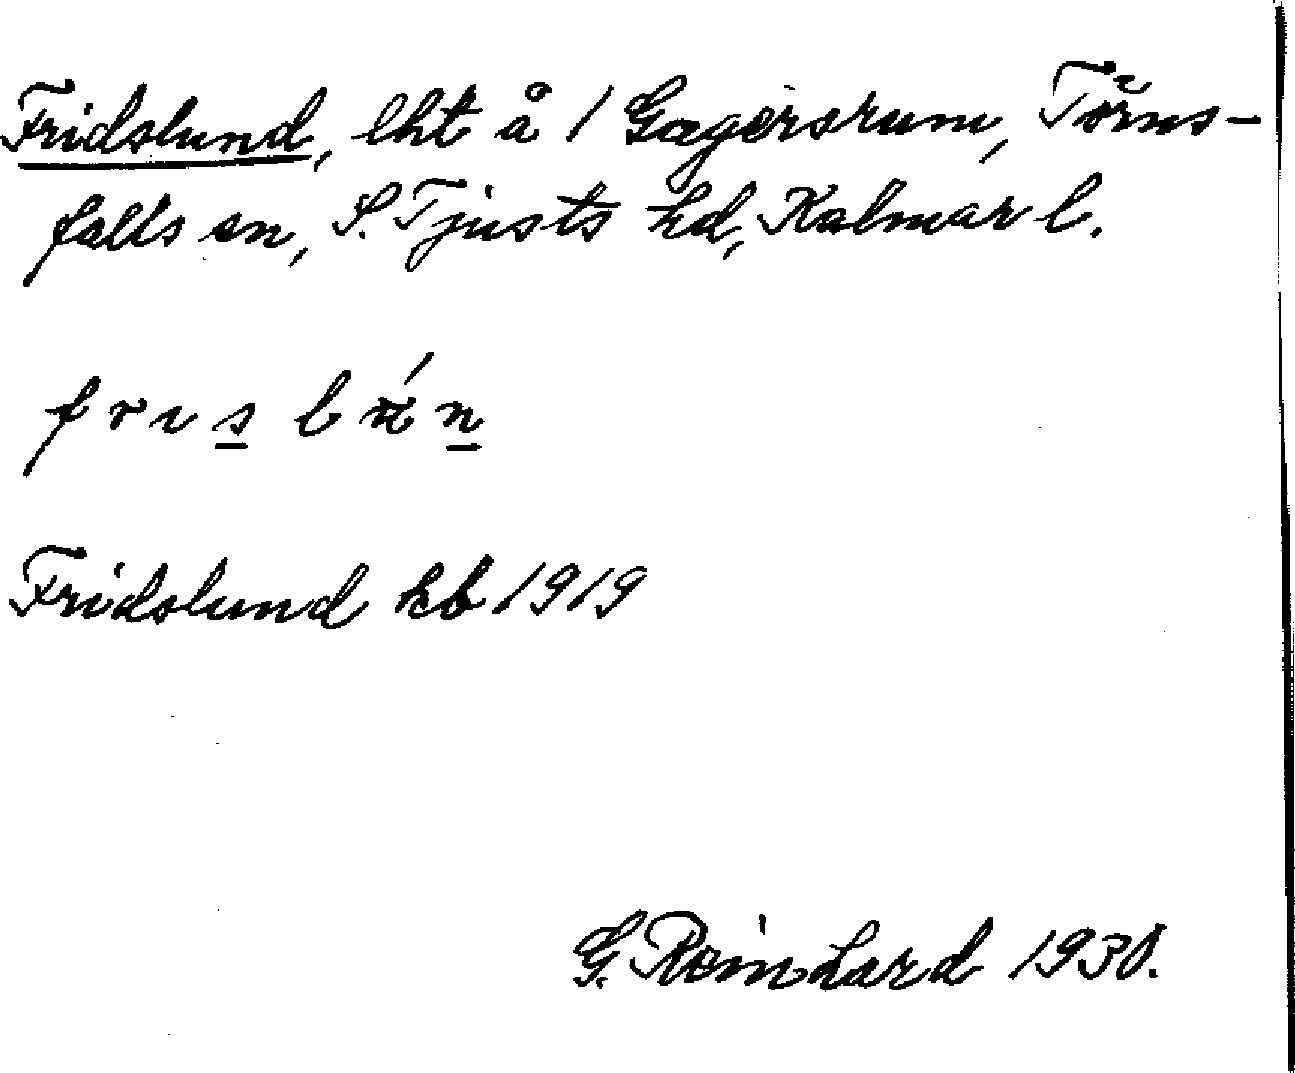 Fridslund, lht å 1 Gagersrum, Törns-
falls sn, S. Tjusts hd, Kalmar l.
Fridslund kb 1919
G. Reinhard 1930.